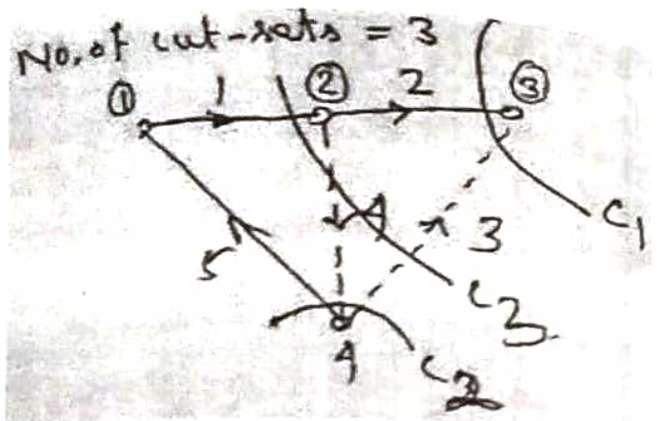 No. of cut-sets = 3
① 1 ② 2 ③
4 3 C1
5 C3
4 C2